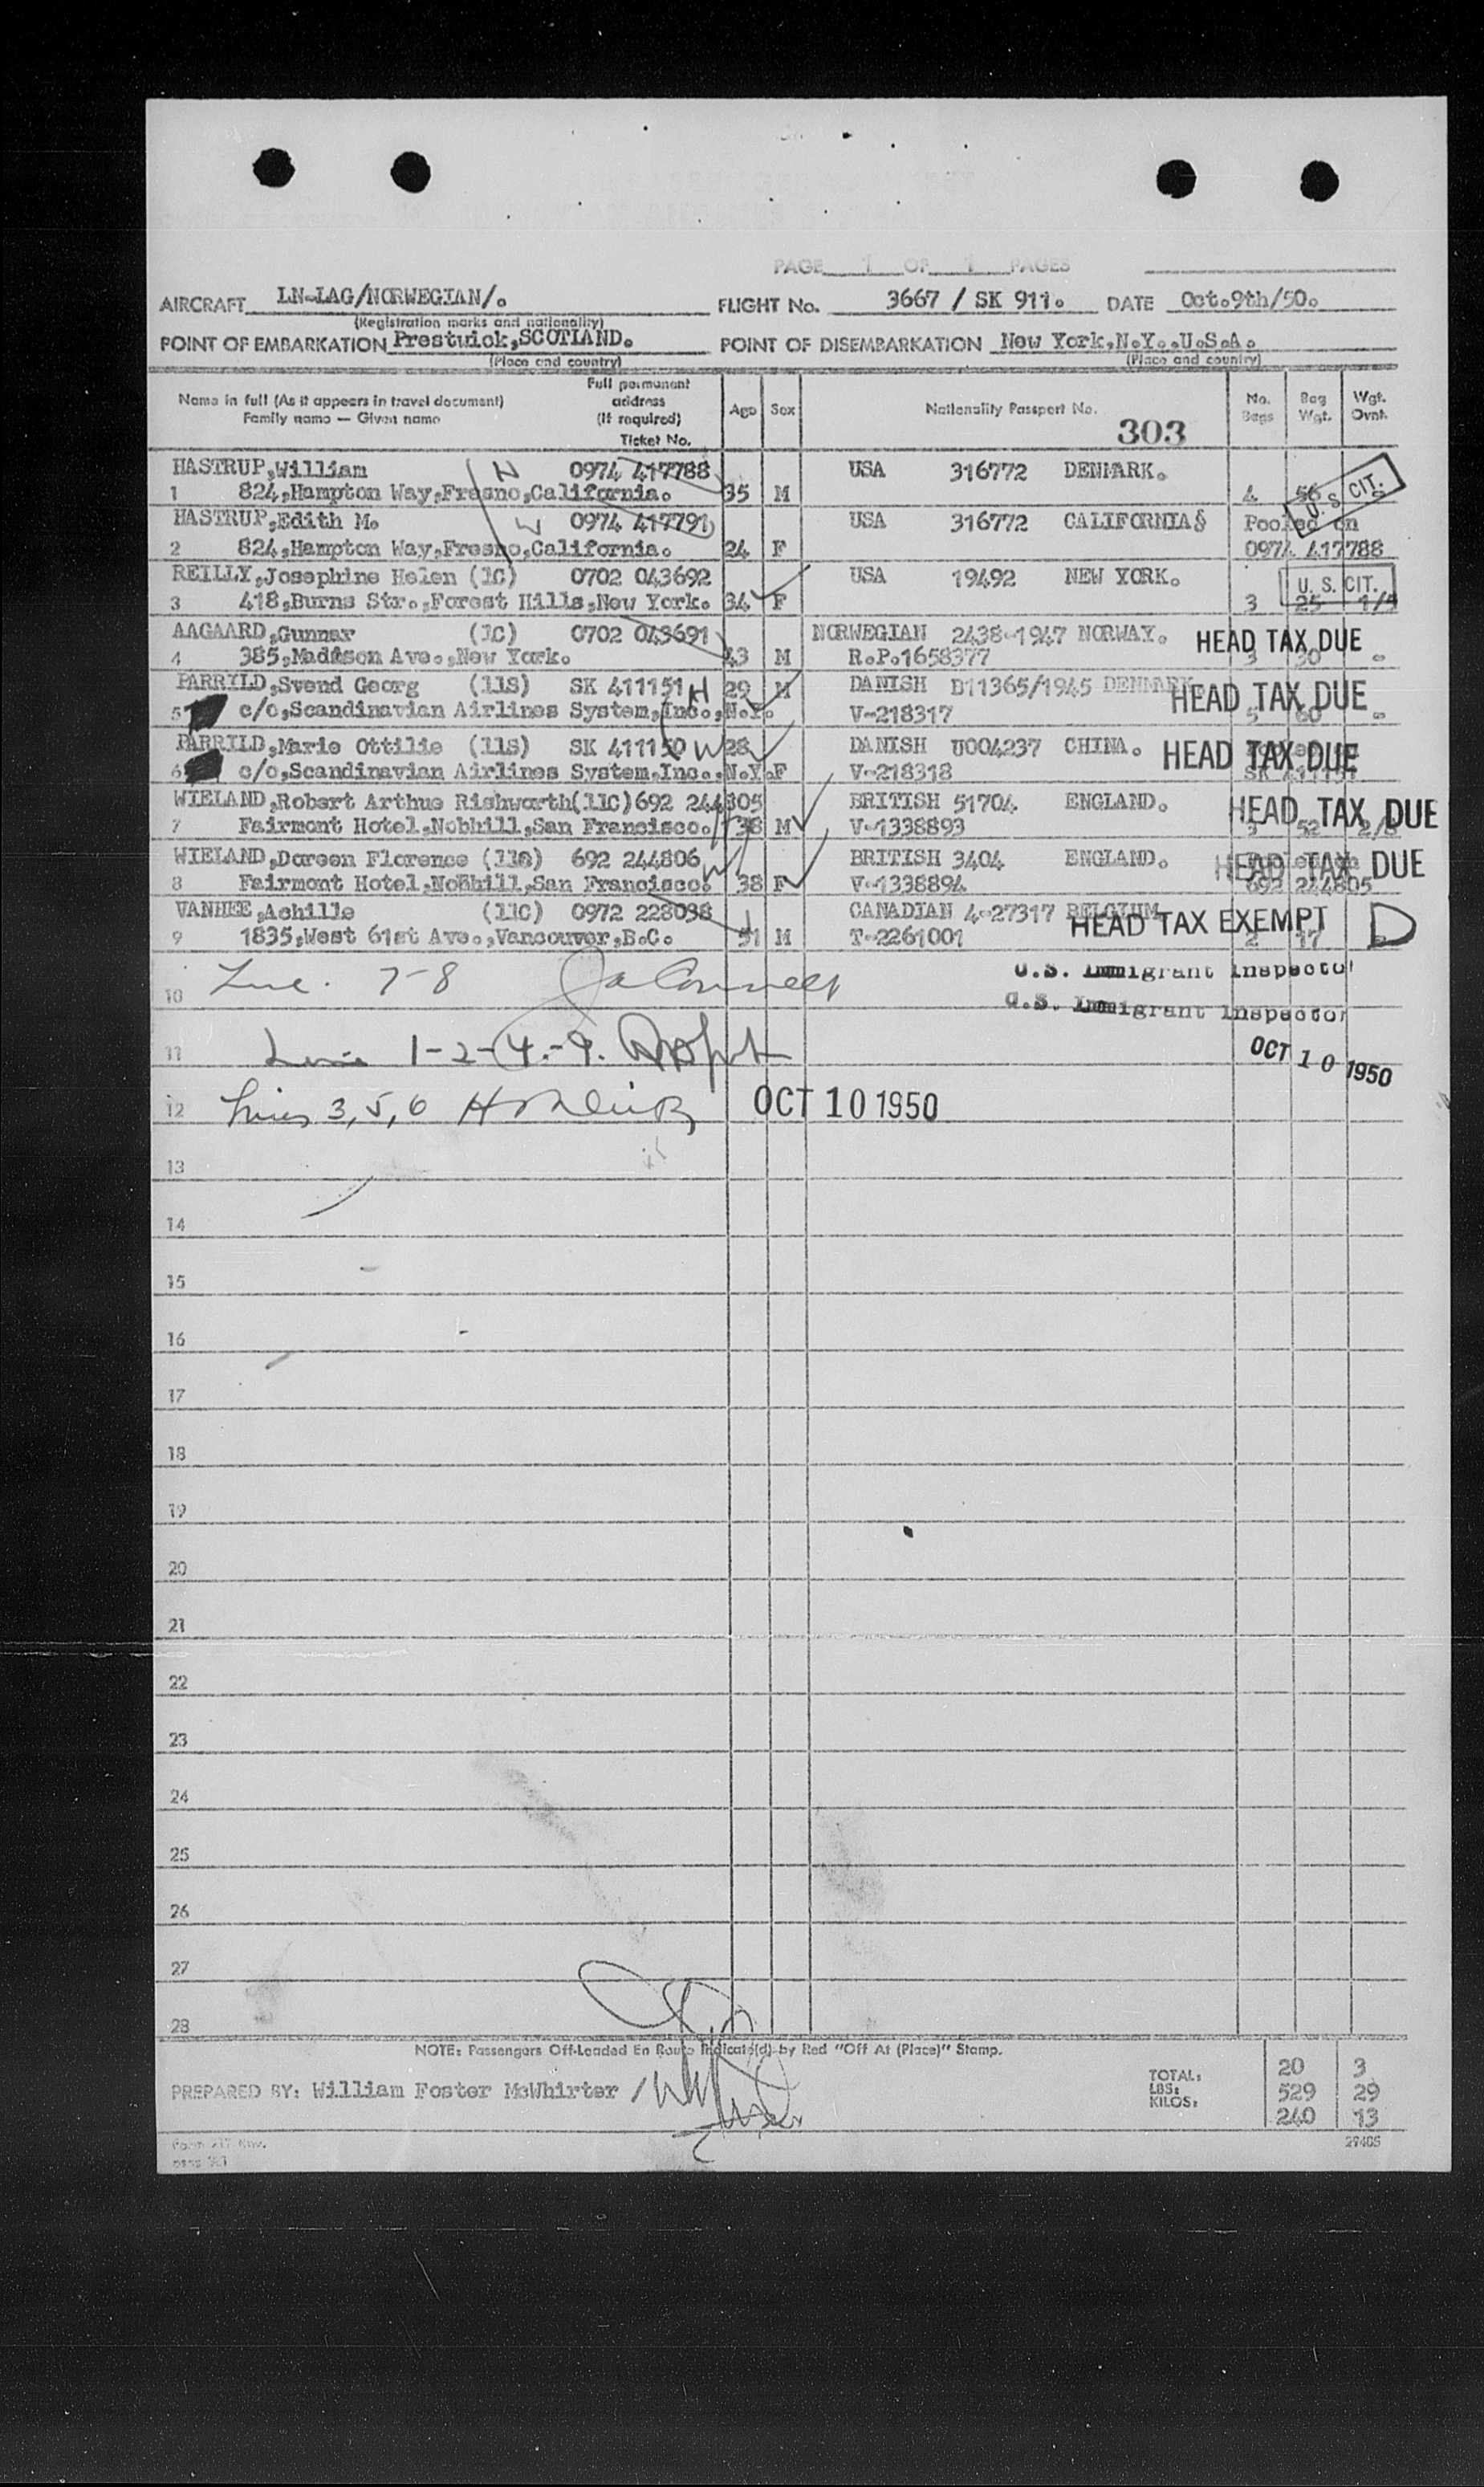 PAGE 1 OF 1 PAGES
AIRCRAFT LN-LAG/NORWEGIAN/. FLIGHT No. 3667 / SK 911. DATE Oct.9th/50.
(Registration marks and nationality)
POINT OF EMBARKATION Prestwick,SCOTLAND. POINT OF DISEMBARKATION New York,N.Y.,U.S.A.
(Place and country) (Place and country)
Name in full (As it appears in travel document) Family name — Given name Full permanent address (If required) Ticket No. Age Sex Nationality Passport No. 303 No. Bags Bag Wgt. Wgt. Ovnt.
HASTRUP,William H 0974 417788 USA 316772 DENMARK.
1 824,Hampton Way,Fresno,California. 35 M 4 56 U.S. CIT.
HASTRUP,Edith M. W 0974 417791 USA 316772 CALIFORNIA§ Pooled on
2 824,Hampton Way,Fresno,California. 24 F 0974 417788
REILLY,Josephine Helen (1C) 0702 043692 USA 19492 NEW YORK. U. S. CIT.
3 418,Burns Str.,Forest Hills,New York. 34 F 3 25 1/5
AAGAARD,Gunnar (1C) 0702 043691 NORWEGIAN 2438-1947 NORWAY. HEAD TAX DUE
4 385,Madison Ave.,New York. 43 M R.P.1658377 3 30
PARRILD,Svend Georg (11S) SK 411151 H 29 M DANISH D11365/1945 DENMARK HEAD TAX DUE
5 c/o,Scandinavian Airlines System,Inc.,N.Y. V-218317 5 60
PARRILD,Marie Ottilie (11S) SK 411150 W 28 DANISH U004237 CHINA. HEAD TAX DUE
6 c/o,Scandinavian Airlines System,Inc.,N.Y. F V-218318 SK 411151
WIELAND,Robert Arthus Rishworth(11C) 692 244805 BRITISH 51704 ENGLAND. HEAD TAX DUE
7 Fairmont Hotel,Nobhill,San Francisco. H 38 M V-1338893 3 52 2/8
WIELAND,Doreen Florence (11S) 692 244806 W BRITISH 3404 ENGLAND. HEAD TAX DUE
8 Fairmont Hotel,Nobhill,San Francisco. 38 F V-1338894 692 244805
VANHEE,Achille (11C) 0972 228038 CANADIAN 4-27317 BELGIUM HEAD TAX EXEMPT D
9 1835,West 61st Ave.,Vancouver,B.C. 51 M T-2261001 2 17
10 Line. 7-8 U.S. Immigrant Inspector
U.S. Immigrant Inspector
11 Line 1-2-4-9. OCT 10 1950
12 Lines 3,5,6 OCT 10 1950
13
14
15
16
17
18
19
20
21
22
23
24
25
26
27
28
NOTE: Passengers Off-Loaded En Route Indicate(d) by Red "Off At (Place)" Stamp.
PREPARED BY: William Foster McWhirter /
TOTAL: 20 3
LBS: 529 29
KILOS: 240 13
29405